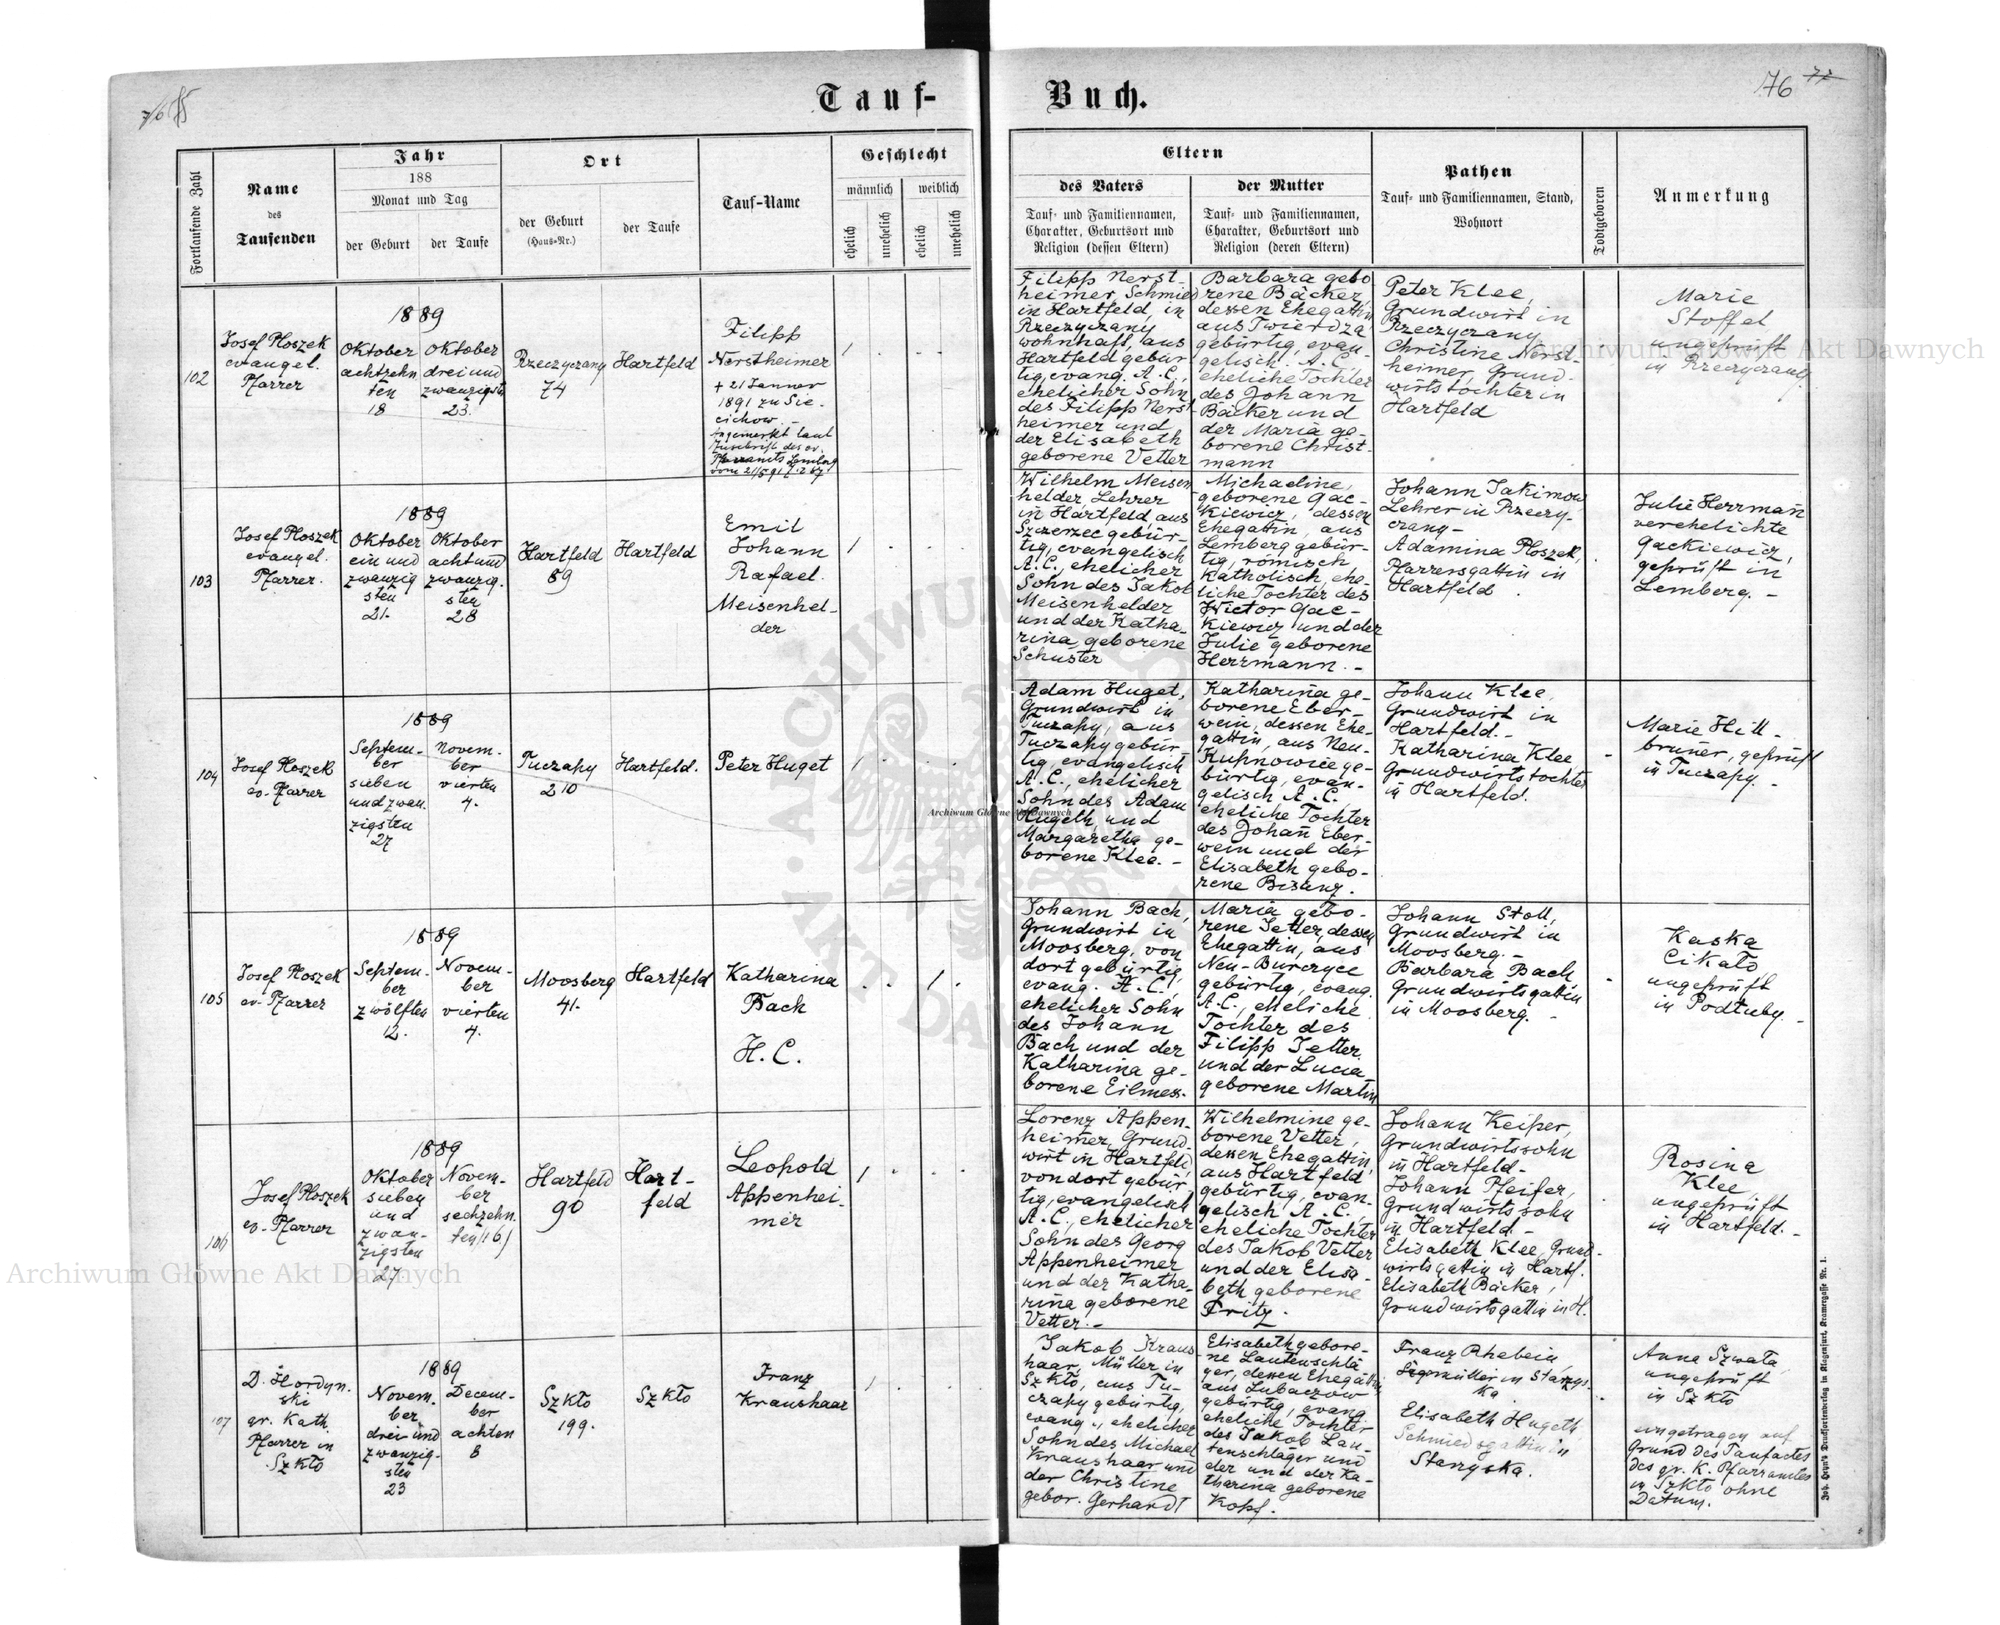 Tauf-
Buch.
76
77
Fortlaufende Zahl
Name
des
Taufenden
Jahr
188
Monat und Tag
der Geburt
der Taufe
Ort
der Geburt
(Haus-Nr.)
der Taufe
Tauf-Name
Geschlecht
männlich
weiblich
ehelich
unehelich
ehelich
unehelich
Eltern
des Vaters
Tauf- und Familiennamen,
Charakter, Geburtsort und
Religion (dessen Eltern)
der Mutter
Tauf- und Familiennamen,
Charakter, Geburtsort und
Religion (deren Eltern)
Pathen
Tauf- und Familiennamen, Stand,
Wohnort
Todtgeboren
Anmerkung
102
Josef Ploszek
evangel.
Pfarrer
1889
Oktober
achtzehn
ten
18
Oktober
drei und
zwanzigste
23.
Rzeczyczany
74
Hartfeld
Filipp
Nerstheimer
+ 21 Janner
1891 zu Sie-
cichow. -
Angemerkt laut
Zuschrift des ev.
Pfarramts Lemberg
1
Filipp Nerst-
heimer, Schmied
in Hartfeld, in
Rzeczyczany
wohnhaft, aus
Hartfeld gebür-
tig, evang. A. C.,
ehelicher Sohn
des Filipp Nerst
heimer und
der Elisabeth
geborene Vetter
Barbara gebo
rene Bäcker,
dessen Ehegattin
aus Twierdza
gebürtig, evan-
gelisch A. C.,
eheliche Tochter
des Johann
Bäcker und
der Maria ge-
borene Christ-
mann
Peter Klee,
Grundwirt in
Rzeczyczany
Christine Nerst-
heimer, Grund-
wirtstochter in
Hartfeld
Marie
Stoffel
ungeprüft
in Rzeczyczany
103
Josef Ploszek
evangel.
Pfarrer.
1889
Oktober
ein und
zwanzig
sten
21.
Oktober
acht und
zwanzig.
sten
28
Hartfeld
89
Hartfeld
Emil
Johann
Rafael.
Meisenhel-
der
1
Wilhelm Meisen
helder, Lehrer
in Hartfeld, aus
Szczerzec gebür-
tig, evangelisch
A. C., ehelicher
Sohn des Jakob
Meisenhelder
und der Katha-
rina, geborene
Schuster
Michaeline,
geborene Gac-
kiewicz, dessen
Ehegattin, aus
Lemberg gebür-
tig, römisch
Katholisch, ehe-
liche Tochter des
Wictor Gac-
kiewicz und der
Julie geborene
Herrmann. -
Johann Jakimow
Lehrer in Rzeczy-
czany -
Adamina Ploszek,
Pfarrersgattin in
Hartfeld
Julie Herrmann
verehelichte
Gackiewicz,
geprüft in
Lemberg. -
104
Josef Ploszek
ev. Pfarrer
1889
Septem-
ber
sieben
und zwan.
zigsten
27
Novem-
ber
vierten
4.
Tuczapy
210
Hartfeld.
Peter Huget
1
Adam Huget,
Grundwirt in
Tuczapy, aus
Tuczapy gebür-
tig, evangelisch
A. C., ehelicher
Sohn des Adam
Hugeth, und
Margaretha ge-
borene Klee. -
Katharina ge-
borene Eber-
wein, dessen Ehe-
gattin, aus Neu-
Kupnowice ge-
bürtig, evan-
gelisch A. C.,
eheliche Tochter
des Johañ Eber-
wein und der
Elisabeth gebo-
rene Bisanz.
Johann Klee,
Grundwirt in
Hartfeld. -
Katharina Klee
Grundwirtstochter
in Hartfeld.
Marie Hell-
bruner, geprüft
in Tuczapy. -
105
Josef Ploszek
ev. Pfarrer
1889
Septem-
ber
zwölften
12.
Novem-
ber
vierten
4.
Moosberg
41.
Hartfeld
Katharina
Bach
H. C.
1
Johann Bach,
Grundwirt in
Moosberg, von
dort gebürtig,
evang. H. C.,
ehelicher Sohn
des Johann
Bach und der
Katharina ge-
borene Eilmes.
Maria gebo-
rene Jetter, dessen
Ehegattin, aus
Neu-Burczyce
gebürtig, evang.
A. C., eheliche
Tochter des
Filipp Jetter
und der Lucia
geborene Martin
Johann Stoll,
Grundwirt in
Moosberg. -
Barbara Bach
Grundwirtsgattin
in Moosberg. -
Kaska
Cikało
ungeprüft
in Podłuby. -
106
Josef Ploszek
ev. Pfarrer
1889
Oktober
sieben
und
zwan-
zigsten
27
Novem-
ber
sechzehn-
ten /16/
Hartfeld
90
Hart-
feld
Leopold
Appenhei-
mer
1
Lorenz Appen-
heimer, Grund
wirt in Hartfeld,
von dort gebür
tig, evangelisch
A. C., ehelicher
Sohn des Georg
Appenheimer
und der Katha-
rina geborene
Vetter. -
Wilhelmine ge-
borene Vetter,
dessen Ehegattin,
aus Hartfeld
gebürtig, evan-
gelisch A. C.
eheliche Tochter
des Jakob Vetter
und der Elisa-
beth geborene
Fritz.
Johann Keiper,
Grundwirtssohn
in Hartfeld -
Johann Pfeifer,
Grundwirtssohn
in Hartfeld. -
Elisabeth Klee, Grund-
wirtsgattin in Hartf.
Elisabeth Bäcker,
Grundwirtsgattin in H.
Rosina
Klee
ungeprüft
in Hartfeld. -
107
D. Hordyn-
ski
gr. kath.
Pfarrer in
Szkło
1889
Novem-
ber
drei und
zwanzig-
sten
23
Decem-
ber
achten
8
Szkło
199.
Szkło
Franz
Kraushaar
1
Jakob Kraus
haar, Müller in
Szkło, aus Tu-
czapy gebürtig,
evang., ehelicher
Sohn des Michael
Kraushaar und
der Christine
gebor. Gerhardt
Elisabeth gebore-
ne Lautenschlä
ger, dessen Ehegattin
aus Lubaczow
gebürtig, evang
eheliche Tochter
des Jakob Lau-
tenschläger und
der und der Ka-
tharina geborene
Kopf.
Franz Rhebein,
Sägemüller in Starzys-
ka
Elisabeth Hugeth
Schmiedsgattin in
Starzyska.
Anna Szwała
ungeprüft
in Szkło
eingetragen auf
Grund des Taufactes
des gr. K. Pfarramtes
in Szkło ohne
Datum.
Joh. Heyn's Drucksortenverlag in Klagenfurt, Kramergasse Nr. 1.
Archiwum Główne Akt Dawnych
Archiwum Główne Akt Dawnych
Archiwum Główne Akt Dawnych